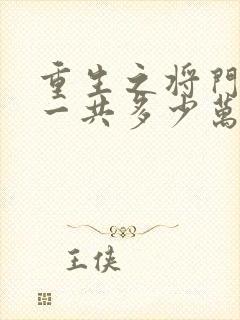 重生之将門
一共多少萬
王侠